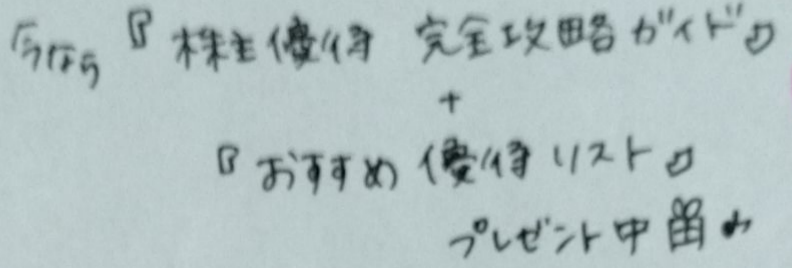 今なら『株主優待 完全攻略ガイド』
+
『おすすめ優待リスト』
プレゼント中🎁